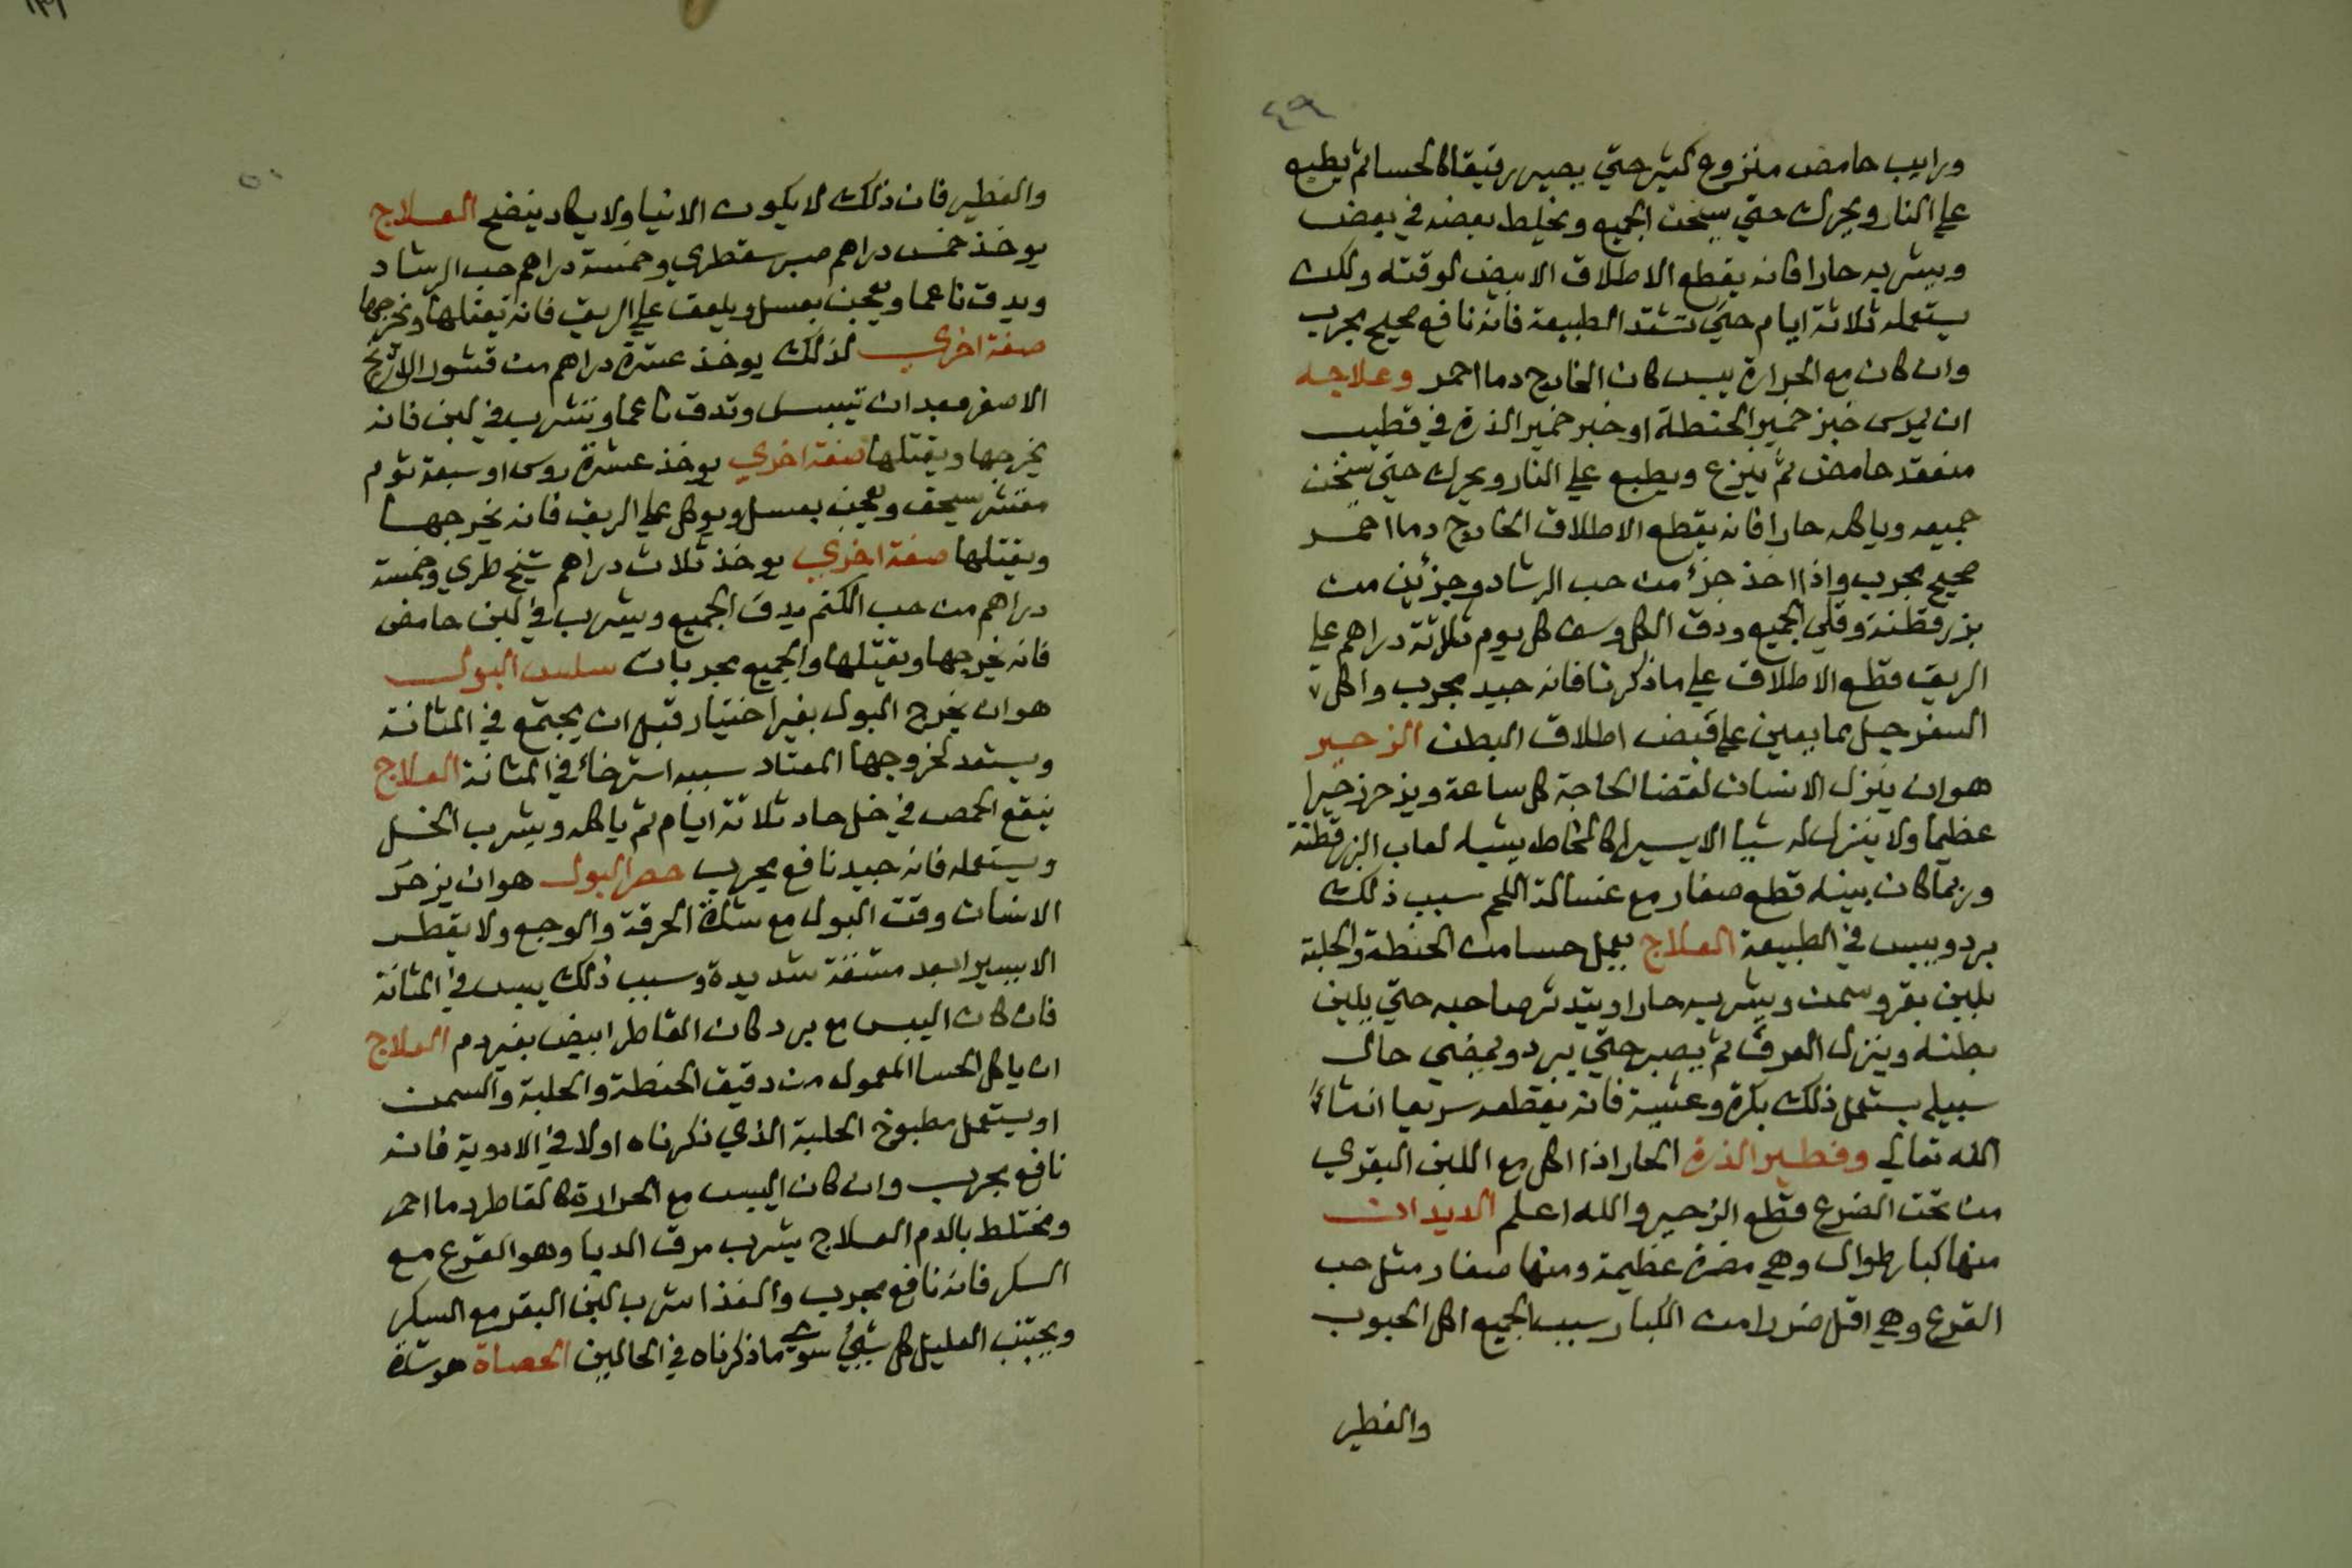 ٤٩
ورايب حامض منزوع كثير حتي يصير رقيقا كالحسا ثم يطبع
علي النار ويحرك حتي يسخن الجميع ويخلط بعضه في بعض
ويشربه حارا فانه يقطع الاطلاق الابيض لوقته ولكن
يستعمله ثلاثة ايام حتي تشتد الطبيعة فانه نافع صحيح مجرب
وان كان مع الحرارة يبس كان الخارج دما احمر وعلاجه
ان يمرس خبز خمير الحنطة او خبز خمير الذرة في قطيب
منعقد حامض ثم ينزع ويطبع علي النار ويحرك حتي يسخن
جميعه وياكله حارا فانه يقطع الاطلاق الخارج دما احمر
صحيح مجرب واذا اخذ جزء من حب الرشاد وجزئين من
بزر قطنة وقلي الجميع ودق الكل وسف كل يوم ثلاثة دراهم علي
الريق قطع الاطلاق علي ما ذكرنا فانه جيد مجرب واكل
السفرجل مما يعين علي قبض اطلاق البطن الزحير
هو ان ينزل الانسان لقضا الحاجة كل ساعة ويزحر زحيرا
عظيما ولا ينزل له شيا الا يسيرا كالمخاط يشبه لعاب البزرقطنة
وربما كان بينه قطع صغار مع غسالة اللحم سبب ذلك
برد ويبس في الطبيعة العلاج يعمل حسا من الحنطة والحلبة
بلبن بقر وسمن ويشربه حارا ويتدثر صاحبه حتي يلين
بطنه وينزل العرق ثم يصبر حتي يبرد ويمضي حال
سبيله يستعمل ذلك بكرة وعشية فانه يقطعه سريعا انشاء
الله تعالي وفطير الذرة الحار اذا اكل مع اللبن البقري
من تحت الضرع قطع الزحير والله اعلم الديدان
منها كبار طوال وهي مضرة عظيمة ومنها صغار مثل حب
القرع وهي اقل ضررا من الكبار سبب الجميع اكل الحبوب
والفطير
٥٠
والفطير فان ذلك لا يكون الا نيا ولا يكاد ينضج العلاج
يوخذ خمس دراهم صبر سقطري وخمسة دراهم حب الرشاد
ويدق ناعما ويعجن بعسل ويلعق علي الريق فانه يقتلها ويخرجها
صفة اخري لذلك يوخذ عشرة دراهم من قشور الاترنج
الاصفر بعد ان تيبس وتدق ناعما وتشرب في لبن فانه
يخرجها ويقتلها صفة اخري يوخذ عشرة روس او سبعة ثوم
مقشر يسحق ويعجن بعسل ويوكل علي الريق فانه يخرجها
ويقتلها صفة اخري يوخذ ثلاث دراهم شيح طري وخمسة
دراهم من حب الكتم يدق الجميع ويشرب في لبن حامض
فانه يخرجها ويقتلها والجميع مجربات سلس البول
هو ان يخرج البول بغير اختيار قبل ان يجتمع في المثانة
ويستعد لخروجها المعتاد سببه استرخائ في المثانة العلاج
ينقع الحمص في خل حاد ثلاثة ايام ثم ياكله ويشرب الخل
ويستعمله فانه جيد نافع مجرب حصر البول هو ان يزحر
الانسان وقت البول مع شدة الحرقة والوجع ولا يقطر
الا يسيرا بعد مشقة شديدة وسبب ذلك يبس في المثانة
فان كان اليبس مع برد كان القاطر ابيض بغير دم العلاج
ان ياكل الحسا المعمول من دقيق الحنطة والحلبة والسمن
او يستعمل مطبوخ الحلبة الذي ذكرناه اولا في الادوية فانه
نافع مجرب وان كان اليبس مع الحرارة كالقاطر دما احمر
ومختلط بالدم العلاج يشرب مرق الدبا وهو القرع مع
السكر فانه نافع مجرب والغذا شرب لبن البقر مع السكر
ويجتنب العليل كل شيئ سوي ما ذكرناه في الحالين الحصاة هو شدة